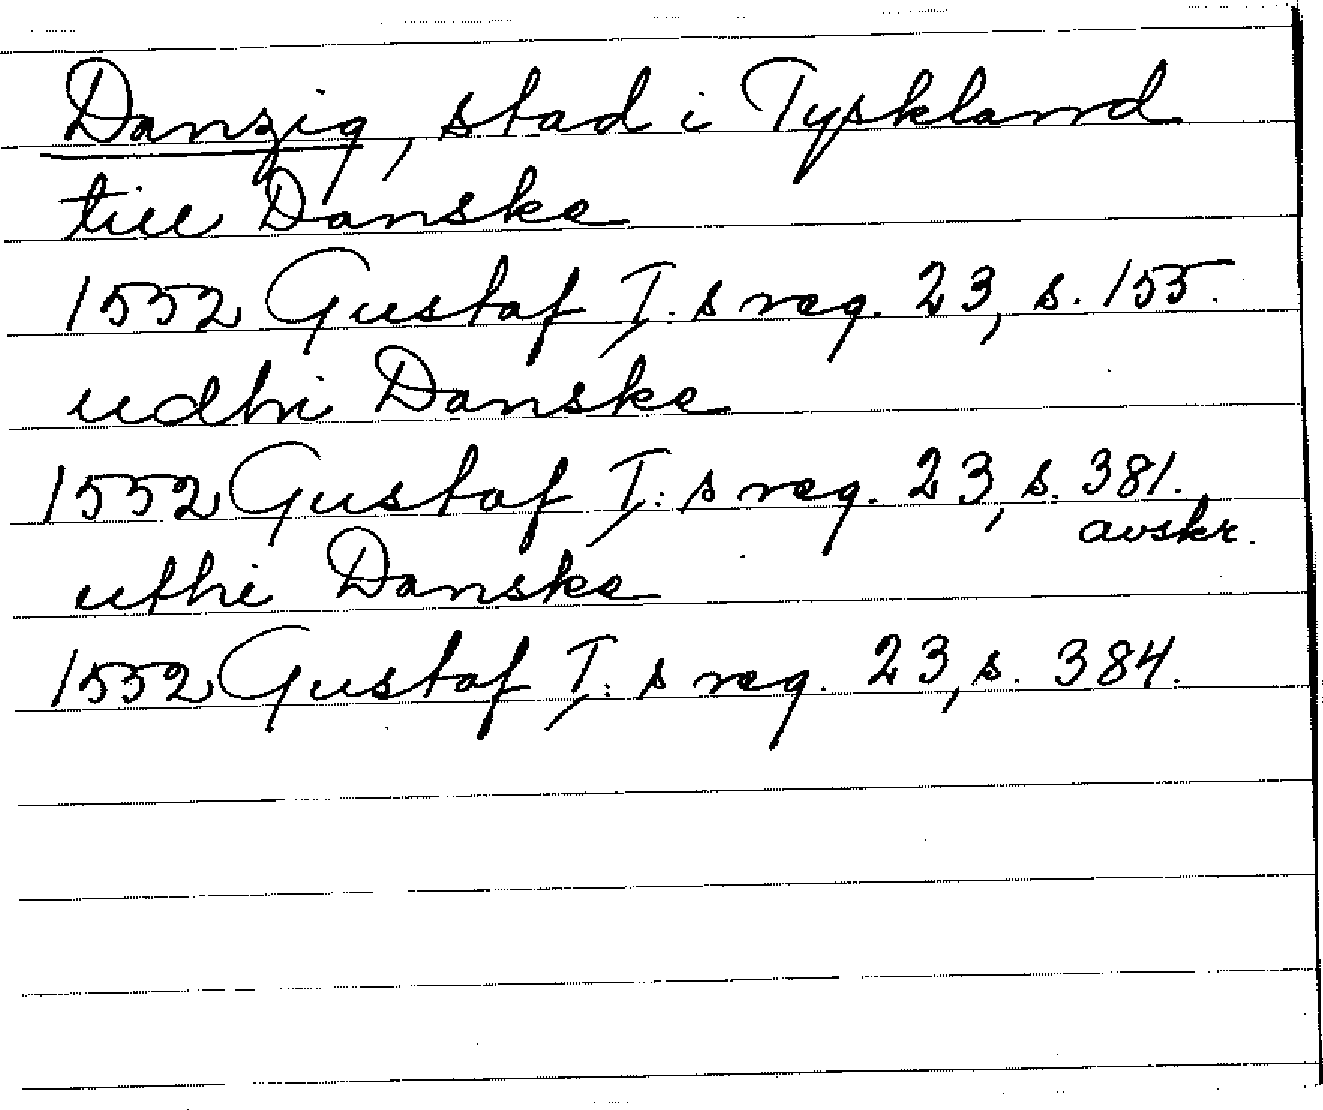 Danzig, stad i Tyskland
till Danske
1552 Gustaf I. s reg. 23, s. 155.
udhi Danske
1552 Gustaf I: s reg. 23, s. 381.
avskr.
uthi Danske
1552 Gustaf I: s reg. 23, s. 384.